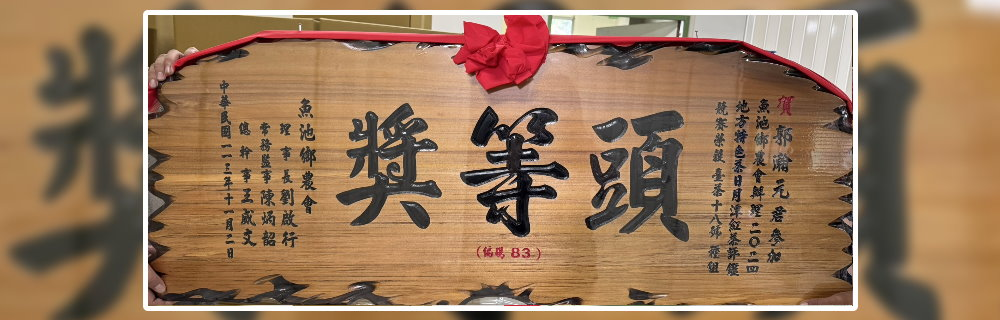 賀 郭瀚元 君參加
魚池鄉農會辦理二〇二四
地方特色茶日月潭紅茶評鑑
競賽榮獲臺茶十八號種組
頭等獎
(編號 83)
魚池鄉農會
理事長劉啟行
常務監事陳炳韶
總幹事王威文
中華民國一一三年十一月二日